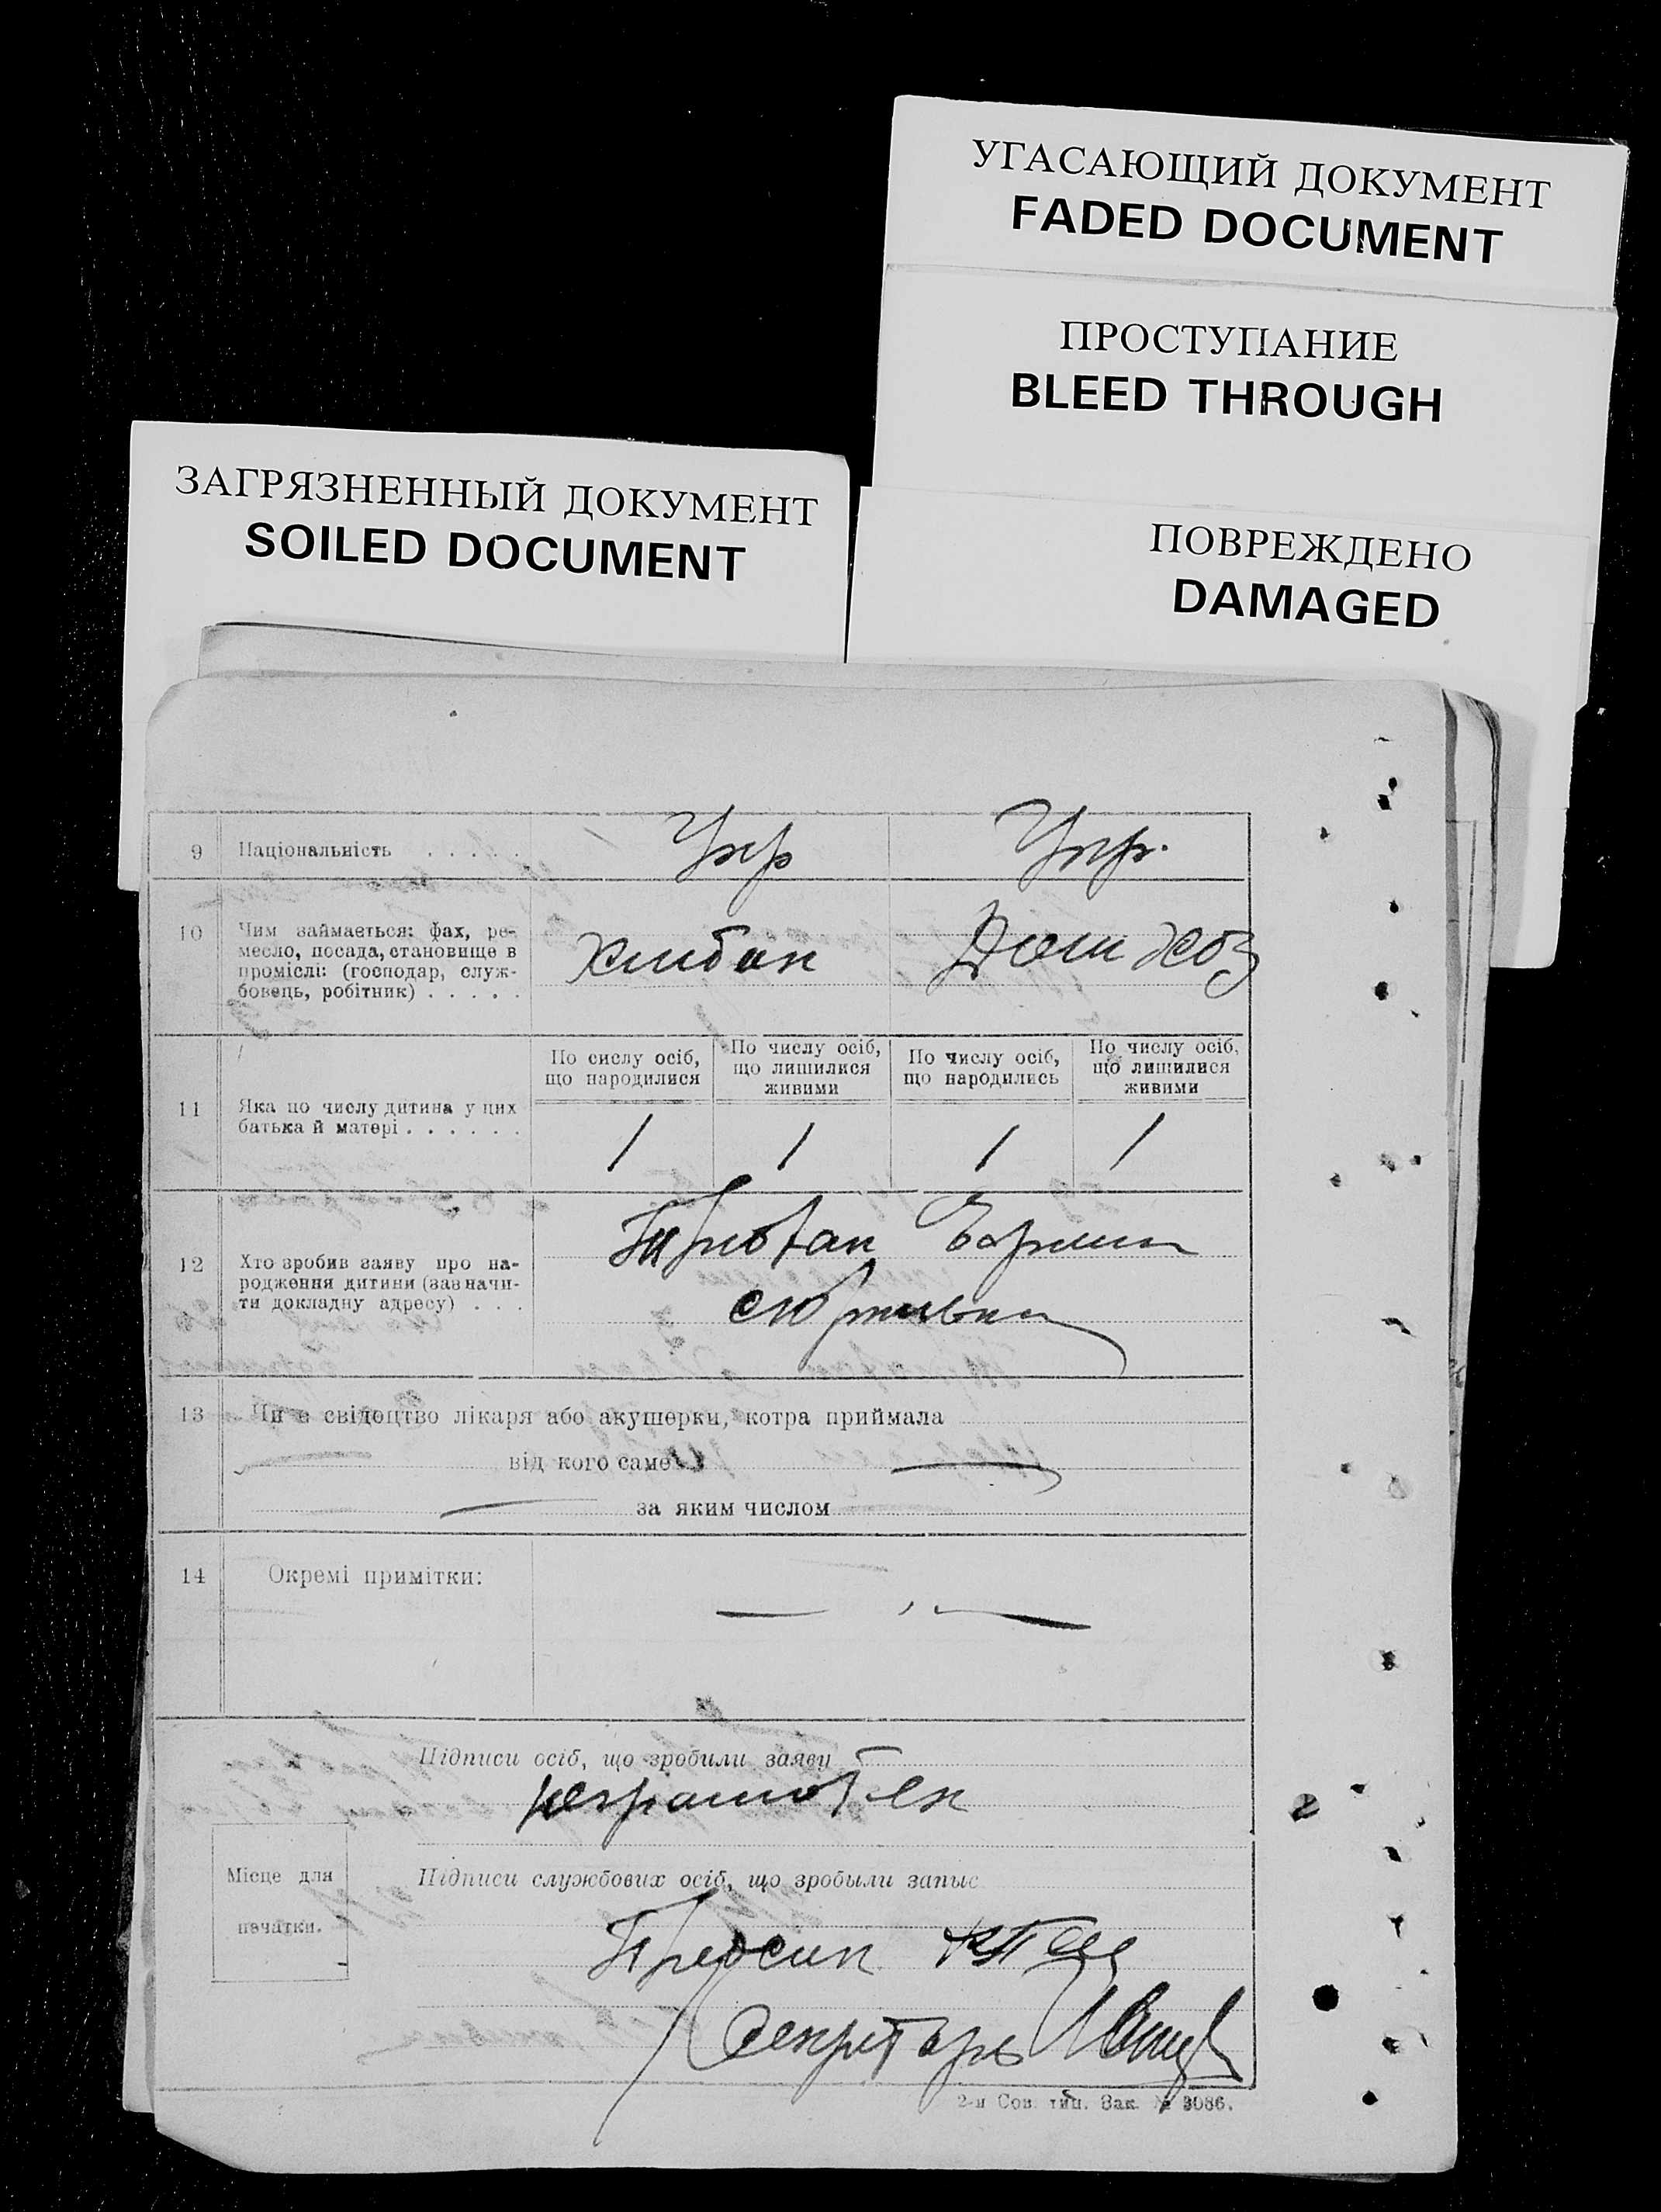 УГАСАЮЩИЙ ДОКУМЕНТ
FADED DOCUMENT
ПРОСТУПАНИЕ
BLEED THROUGH
ЗАГРЯЗНЕННЫЙ ДОКУМЕНТ
SOILED DOCUMENT
ПОВРЕЖДЕНО
DAMAGED
9 Національність . . . . . Укр Укр.
10 Чим займається: фах, ре-
месло, посада, становище в
проміслі: (господар, служ-
бовець, робітник) . . . . .
По сислу осіб, що народилися
По числу осіб, що лишилися живими
По числу осіб, що народились
По числу осіб, що лишилися живими
11 Яка по числу дитина у цих
батька й матері . . . . . .
1 1 1 1
12 Хто зробив заяву про на-
родження дитини (зазначи-
ти докладну адресу) . . .
13 Чи є свідоцтво лікаря або акушерки, котра приймала
від кого саме
за яким числом
14 Окремі примітки:
Підписи осіб, що зробили заяву
Місце для
печатки.
Підписи службових осіб, що зробыли запыс
Секретарь
2-я Сов. тип. Зак. № 3086.